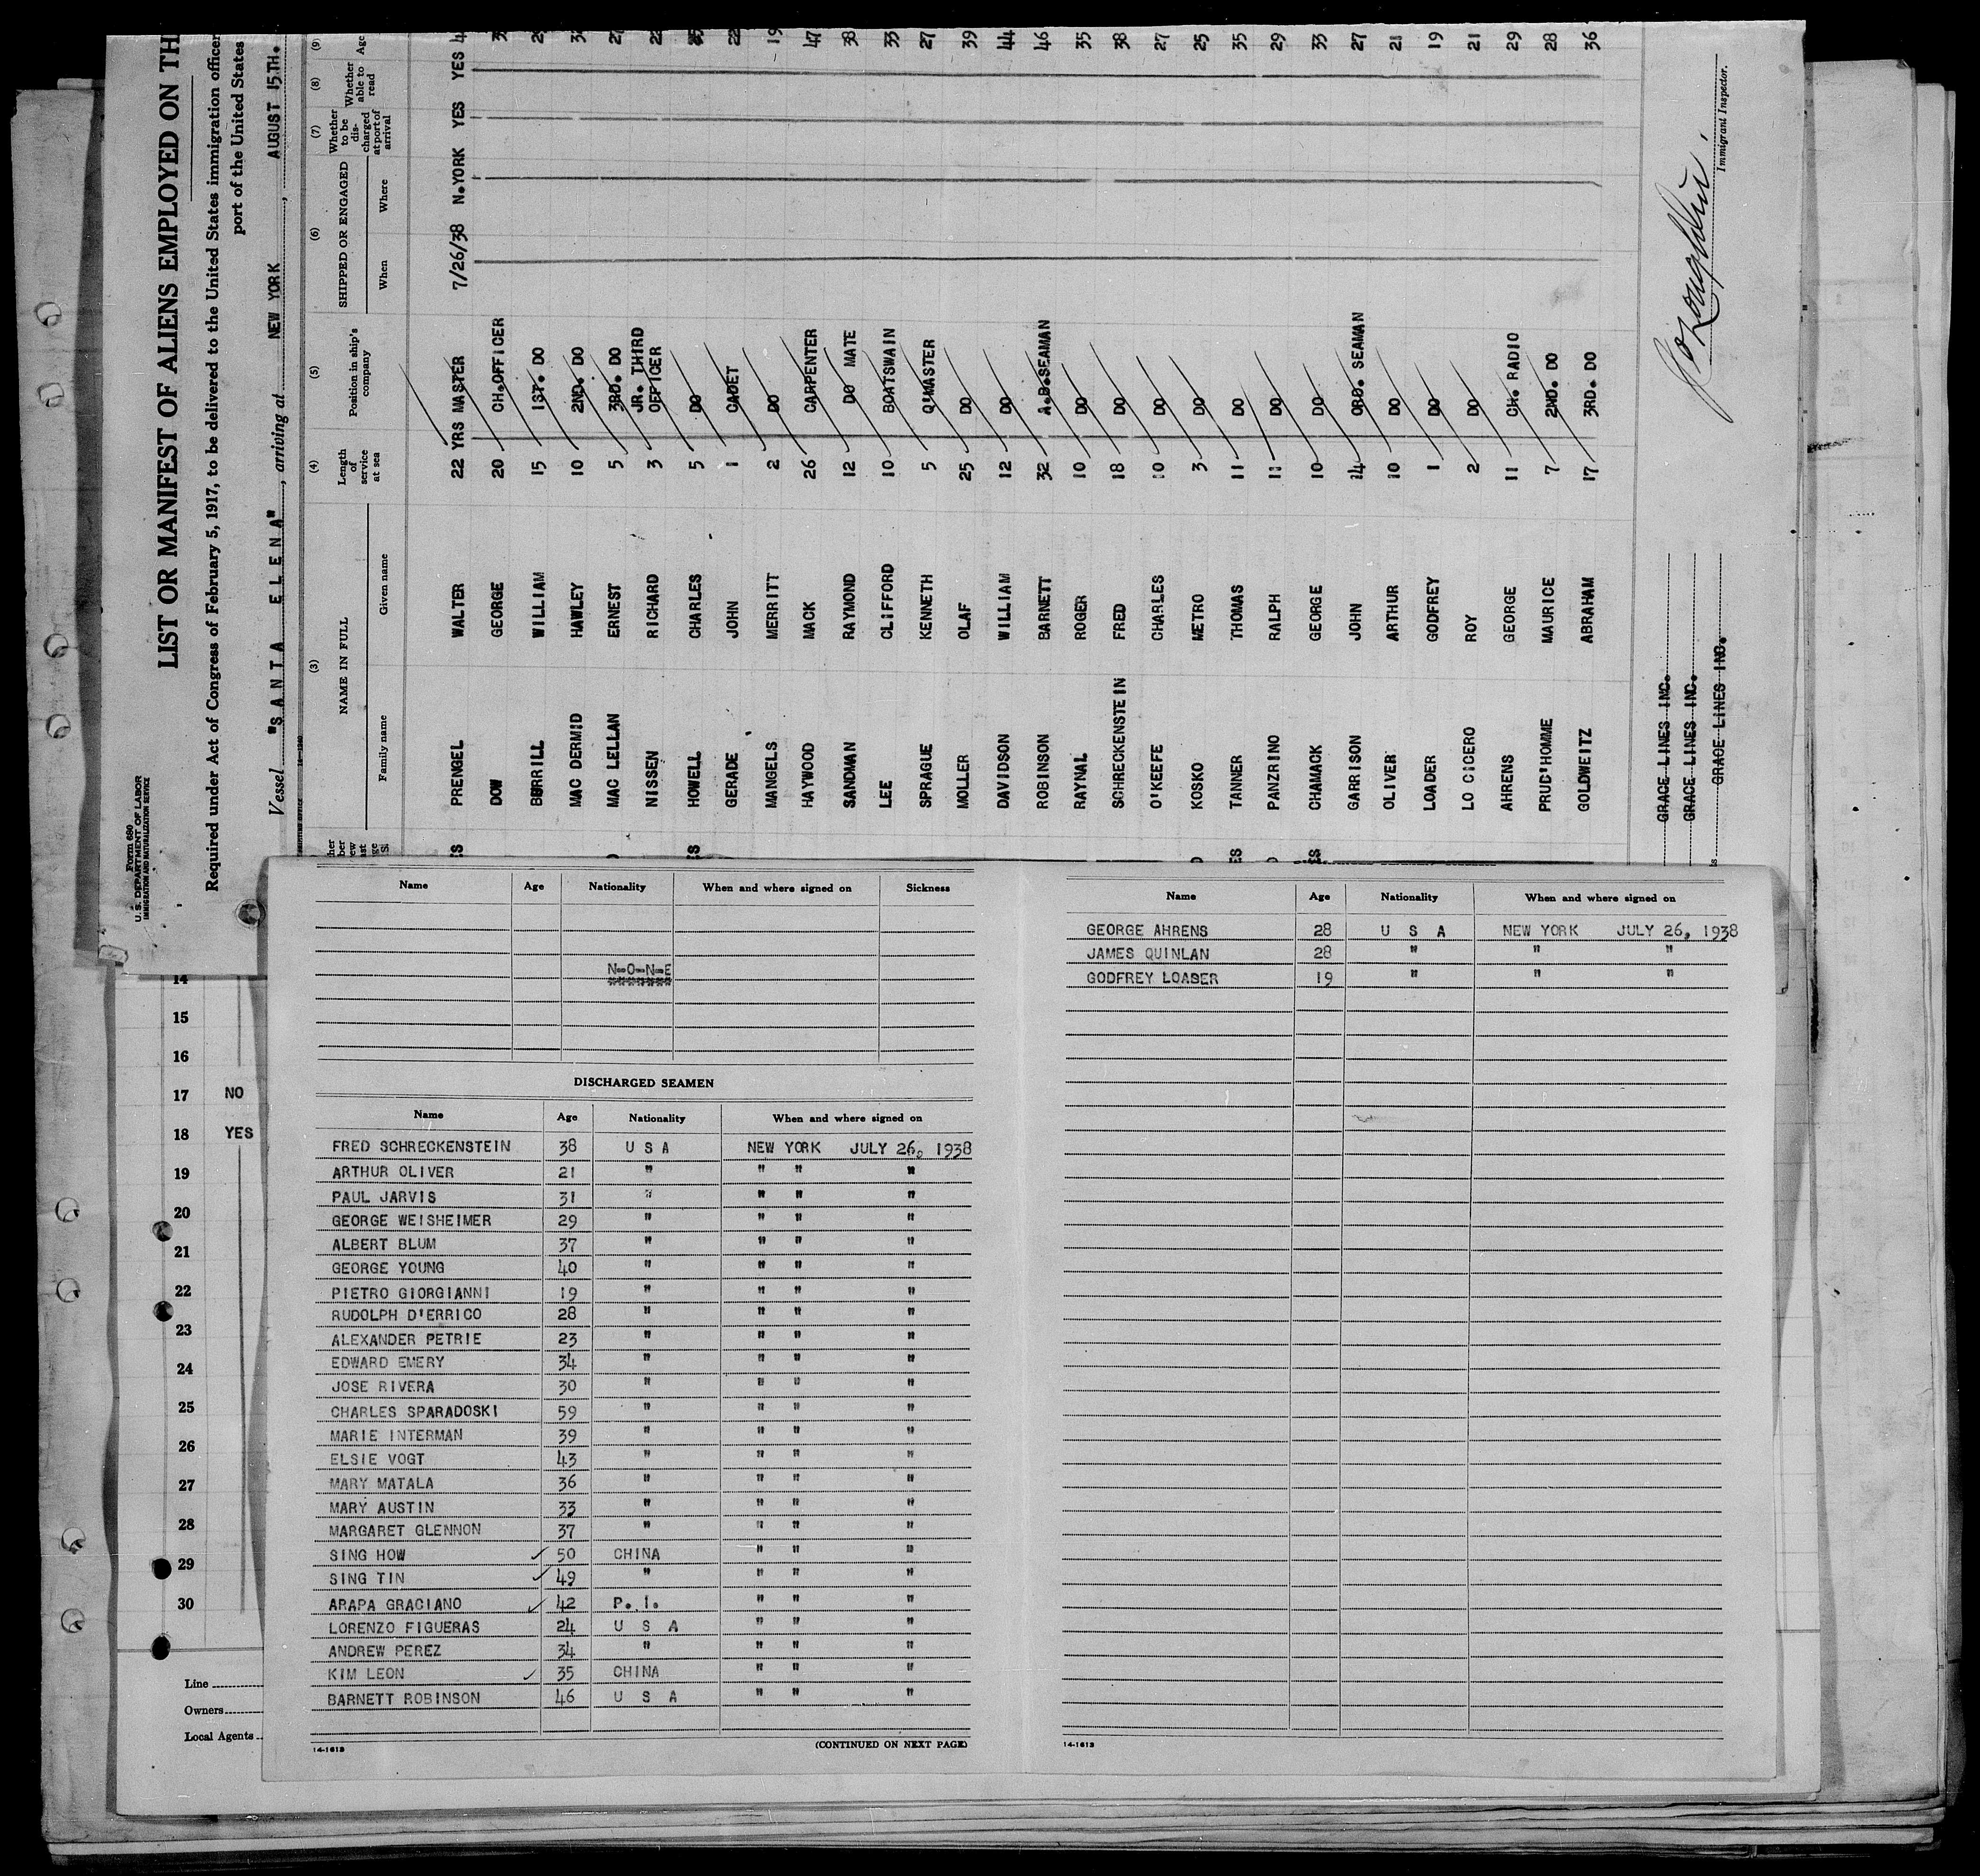 Form 680
U. S. DEPARTMENT OF LABOR
IMMIGRATION AND NATURALIZATION SERVICE
LIST OR MANIFEST OF ALIENS EMPLOYED ON TH
Required under Act of Congress of February 5, 1917, to be delivered to the United States immigration officer
port of the United States
Vessel "SANTA ELENA", arriving at NEW YORK, AUGUST 15TH.
(3) (4) (5) (6) (7) (8) (9)
NAME IN FULL Length of service at sea Position in ship's company SHIPPED OR ENGAGED Whether to be discharged at port of arrival Whether able to read Age
Family name Given name When Where
PRENGEL WALTER 22 YRS MASTER 7/26/38 N.YORK YES YES 4
DOW GEORGE 20 CH.OFFICER
BURRILL WILLIAM 15 1ST. DO
MAC DERMID HAWLEY 10 2ND. DO
MAC LELLAN ERNEST 5 3RD. DO
NISSEN RICHARD 3 JR. THIRD OFFICER
HOWELL CHARLES 5 DO
GERADE JOHN 1 CADET 22
MANGELS MERRITT 2 DO 19
HAYWOOD MACK 26 CARPENTER 47
SANDMAN RAYMOND 12 DO MATE 38
LEE CLIFFORD 10 BOATSWAIN 33
SPRAGUE KENNETH 5 Q'MASTER 27
MOLLER OLAF 25 DO 39
DAVIDSON WILLIAM 12 DO 44
ROBINSON BARNETT 32 A.B.SEAMAN 46
RAYNAL ROGER 10 DO 35
SCHRECKENSTEIN FRED 18 DO 38
O'KEEFE CHARLES 10 DO 27
KOSKO METRO 3 DO 25
TANNER THOMAS 11 DO 35
PANZRINO RALPH 11 DO 29
CHAMACK GEORGE 10 DO 33
GARRISON JOHN 14 ORD. SEAMAN 27
OLIVER ARTHUR 10 DO 21
LOADER GODFREY 1 DO 19
LO CICERO ROY 2 DO 21
AHRENS GEORGE 11 CH. RADIO 29
PRUD'HOMME MAURICE 7 2ND. DO 28
GOLDWEITZ ABRAHAM 17 3RD. DO 36
GRACE LINES INC.
GRACE LINES INC.
GRACE LINES INC.
Immigrant Inspector.
14
15
16
17 NO
18 YES
19
20
21
22
23
24
25
26
27
28
29
30
Line
Owners
Local Agents
Name Age Nationality When and where signed on Sickness
N-O-N-E
DISCHARGED SEAMEN
Name Age Nationality When and where signed on
FRED SCHRECKENSTEIN 38 U S A NEW YORK JULY 26, 1938
ARTHUR OLIVER 21 " " " "
PAUL JARVIS 31 " " " "
GEORGE WEISHEIMER 29 " " " "
ALBERT BLUM 37 " " " "
GEORGE YOUNG 40 " " " "
PIETRO GIORGIANNI 19 " " " "
RUDOLPH D'ERRICO 28 " " " "
ALEXANDER PETRIE 23 " " " "
EDWARD EMERY 34 " " " "
JOSE RIVERA 30 " " " "
CHARLES SPARADOSKI 59 " " " "
MARIE INTERMAN 39 " " " "
ELSIE VOGT 43 " " " "
MARY MATALA 36 " " " "
MARY AUSTIN 33 " " " "
MARGARET GLENNON 37 " " " "
SING HOW 50 CHINA " " "
SING TIN 49 " " " "
ARAPA GRACIANO 42 P. I. " " "
LORENZO FIGUERAS 24 U S A " " "
ANDREW PEREZ 34 " " " "
KIM LEON 35 CHINA " " "
BARNETT ROBINSON 46 U S A " " "
14-1613
(CONTINUED ON NEXT PAGE)
Name Age Nationality When and where signed on
GEORGE AHRENS 28 U S A NEW YORK JULY 26, 1938
JAMES QUINLAN 28 " " "
GODFREY LOADER 19 " " "
14-1613